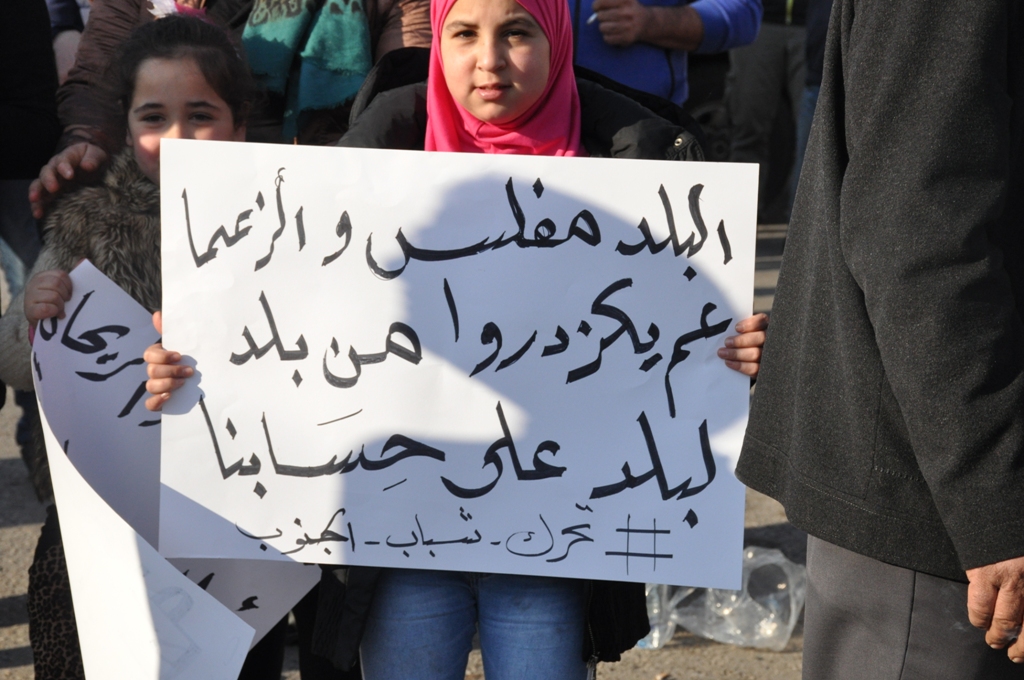 البلد مفلس و الزعما
عم يكزدروا من بلد
لبلد على حِسَابنا
# تحرك - شباب - الجنوب